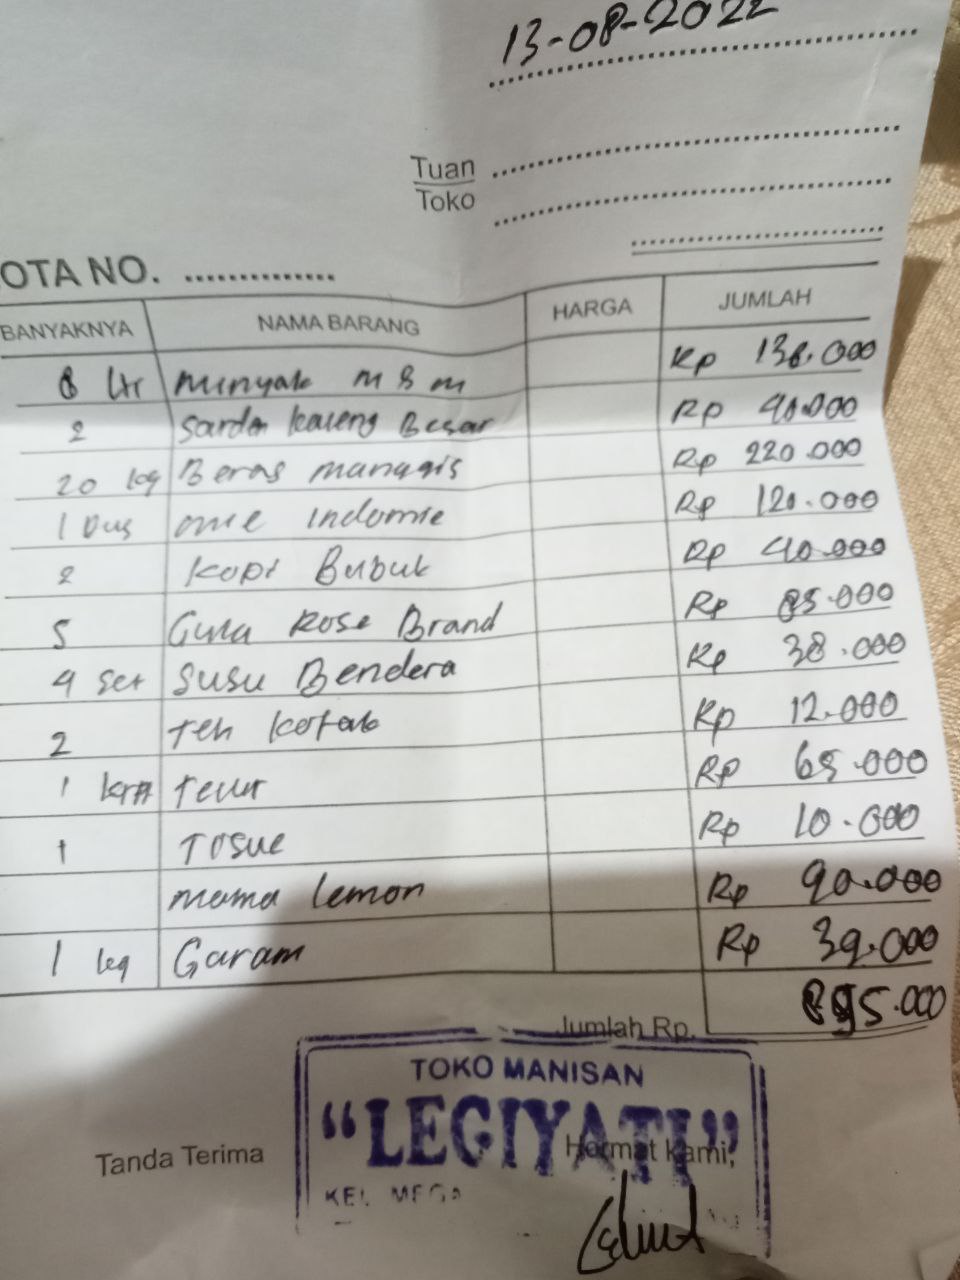 13-08-2022
Tuan
Toko
OTA NO. ..............
BANYAKNYA NAMA BARANG HARGA JUMLAH
8 Ltr Minyak M & M Rp 138.000
2 Sarden kaleng Besar Rp 40.000
20 kg Beras manggis Rp 220.000
1 Dus mie Indomie Rp 120.000
2 kopi Bubuk Rp 40.000
5 Gula Rose Brand Rp 85.000
4 Set Susu Bendera Rp 38.000
2 Teh kotak Rp 12.000
1 Telur Rp 65.000
1 Tosue Rp 10.000
mama lemon Rp 90.000
1 kg Garam Rp 39.000
Jumlah Rp. 895.000
TOKO MANISAN
"LEGIYATI"
Tanda Terima Hormat Kami,
KEL MEGA